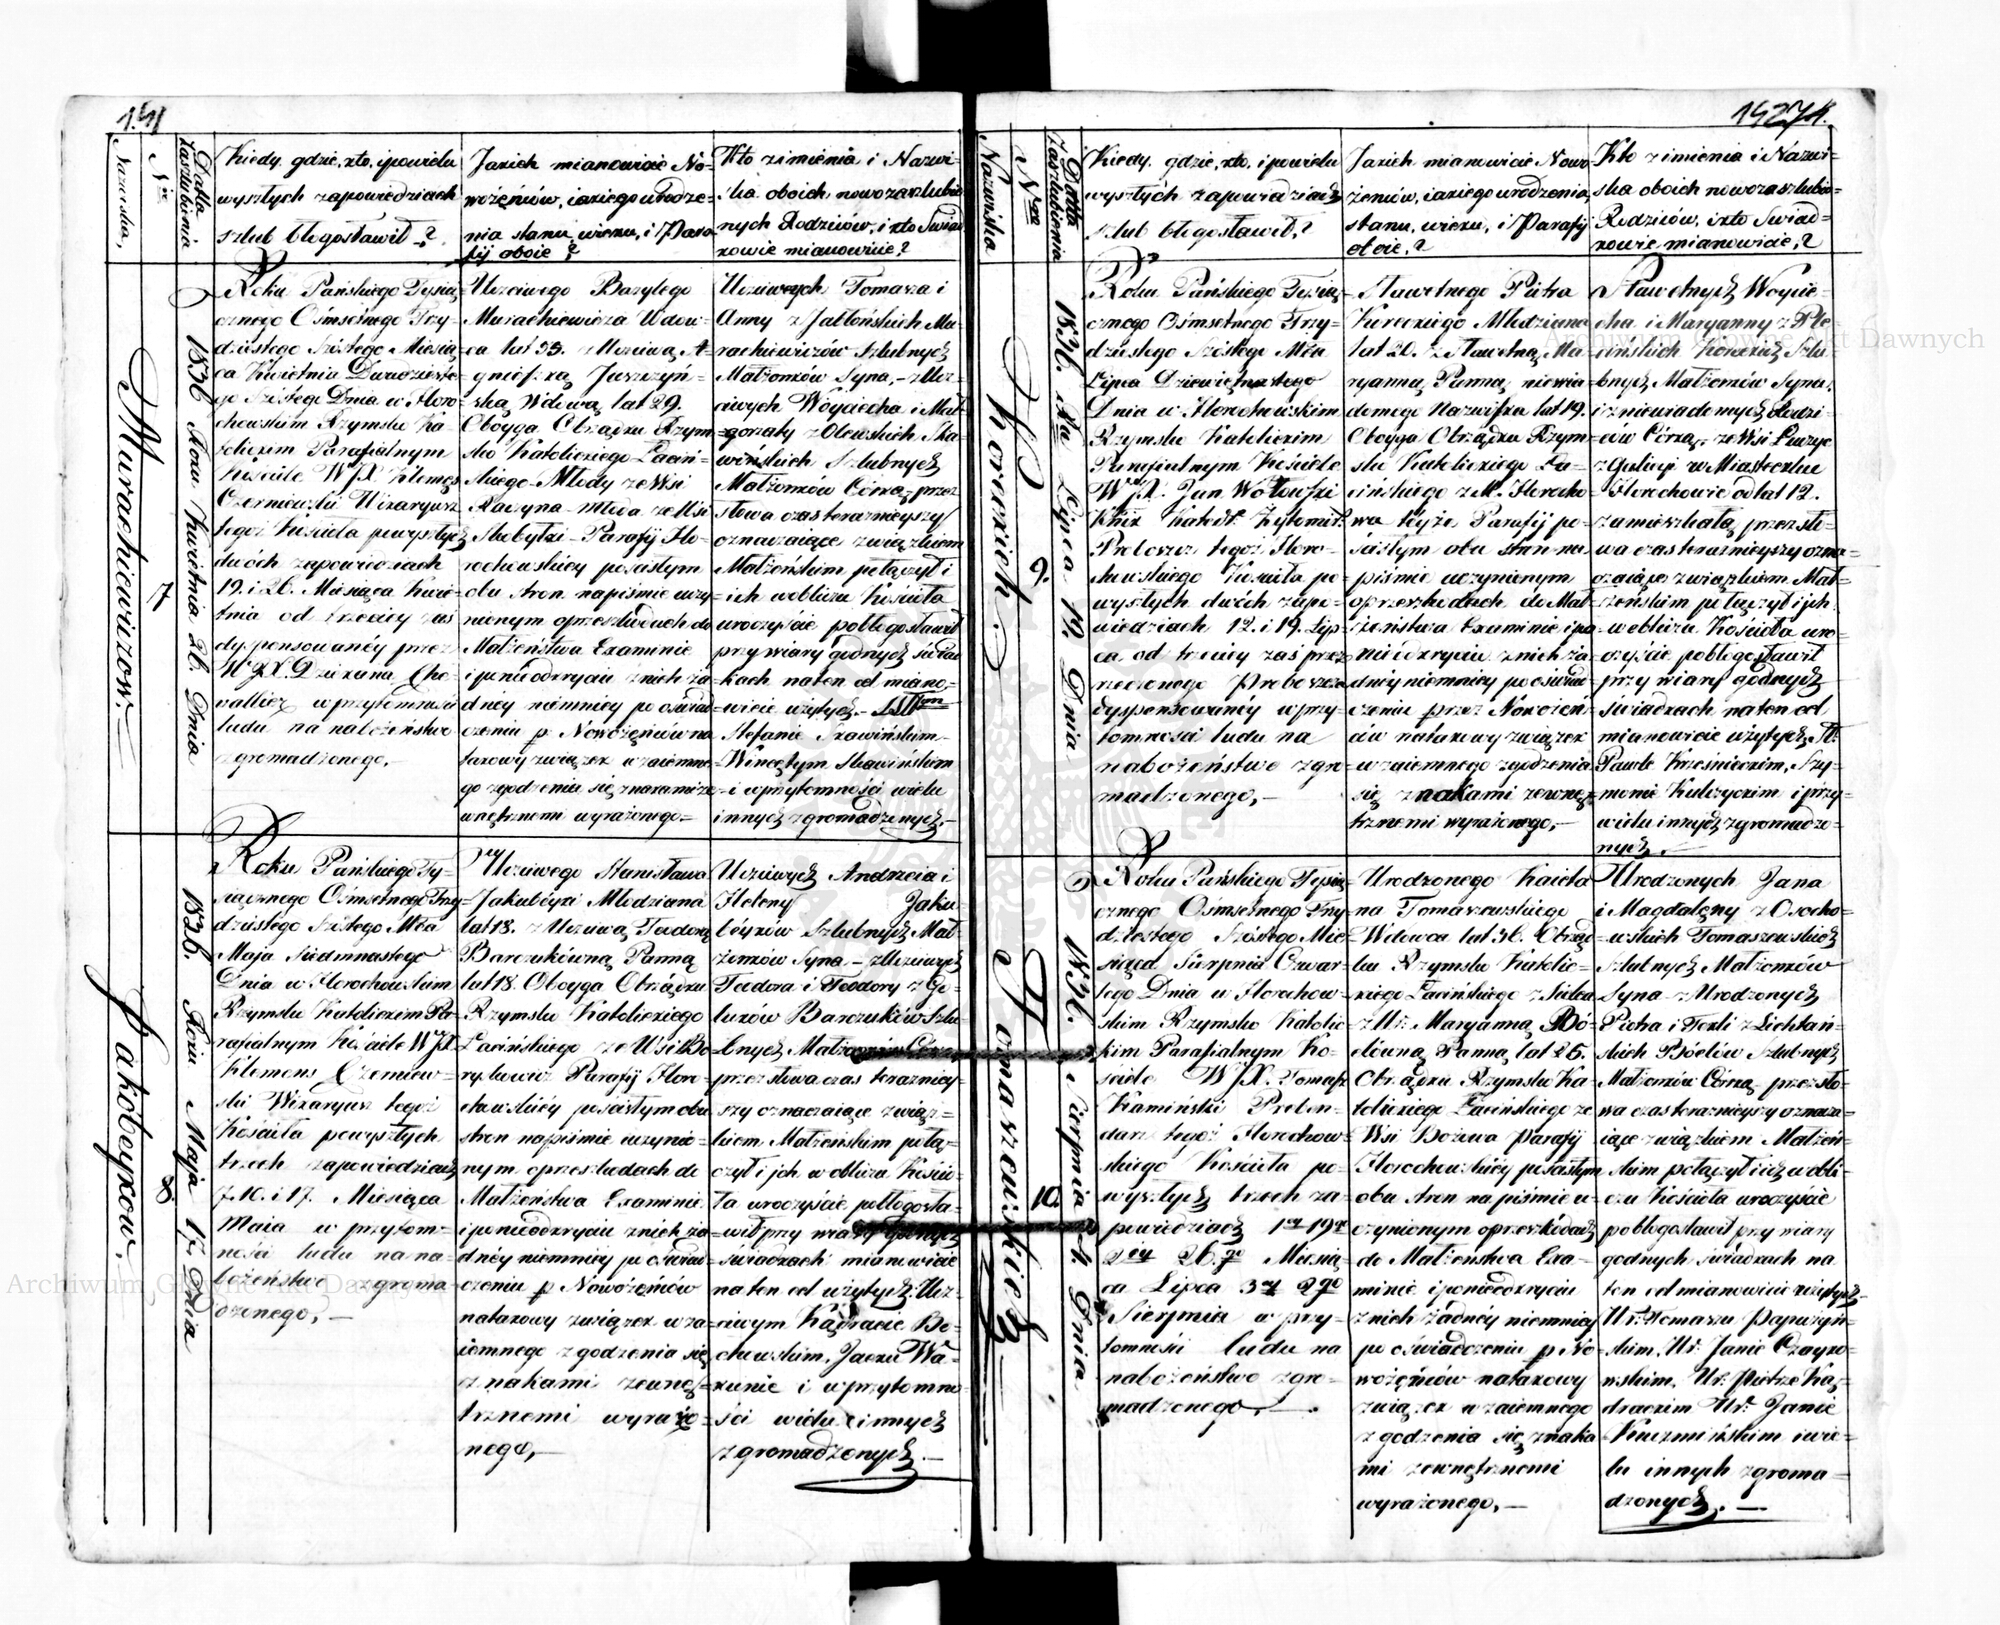 Nazwiska,
Nro
Datta zaslubienia
Kiedy, gdzie, kto, i po wielu
wyszłych zapowiedziach
szlub błogosławił ?
Jakich mianowicie No-
wożeńców, iakiego urodze-
nia stanu, wieku, i Para
fij oboie ?
Kto z imienia i Nazwi-
ska oboich nowozaszlubio
nych Rodziców, i kto Swiad
kowie mianowicie ?
Murachiewiczow.
7
1836 Roku Kwietnia 26. Dnia
Roku Pańskiego Tysią
cznego Ośmsetnego Trzy-
dziestego Szóstego Miesią
ca Kwietnia Dwudzieste-
go Szóstego Dnia w Horo-
chowskim Rzymsko Ka-
tolickim Parafialnym
Kościele WJX. Klemęs
Czerniewski Wikaryusz
tegoż Kościoła po wyszłych
dwóch zapowiedziach
19. i 26. Miesiąca Kwie-
tnia od trzeciey zas
dyspensowanéy przez
W. J. X. Dziekana Che
vallier w przytomności
ludu na nabożeństwo
zgromadzonego. —
Uczciwego Bazylego
Murachiewicza Wdow-
ca lat 33. z Uczciwą A-
gnieszką Juszczyń-
ską Wdową lat 29.
Oboyga Obrządku Rzym
sko Katolickiego Łaciń-
skiego Młody ze Wsi
Raczyna Młoda ze Wsi
Skobyłki Parafij Ho-
rochowskiey po ścisłym
obu stron na piśmie uczy-
nionym o przeszkodach do
Małżeństwa Examinie
i po nieodkryciu z nich ża
dnéy niemniey po oświad-
czeniu p. Nowożeńców na
takowy związek wzaiemne-
go zgodzenia się znakami ze
wnętrznemi wyrażonego =
Uczciwych Tomasza i
Anny z Jabłońskich Mu-
rachiewiczów Szlubnych
Małżonków Syna, — z Ucz-
ciwych Woyciecha i Mał-
gorzaty z Olewskich Ska
wińskich Szlubnych
Małżonków Córką, przez
słowa czas teraznieyszy
oznaczaiące związkiem
Małżeńskim połączył i
ich w obliczu Kościoła
uroczyście pobłogosławił
przy wiary godnych świad
kach na ten cel miano-
wicie użytych. —
Stefanie Skawińskim
Wincętym Skawińskim
i w przytomności wielu
innych zgromadzonych. —
Jakobeyków.
8
1836. Roku Maja 17. Dnia
Roku Pańskiego Ty-
siącznego Ośmsetnego Trzy
dziestego Szóstego Mca
Maja Siedmnastego
Dnia w Horochowskim
Rzymsko Katolickim Pa-
rafialnym Kościele WJX.
Klemens Czerniew-
ski Wikaryusz tegoż
Kościoła po wyszłych
trzech zapowiedziach
7. 10. i 17. Miesiąca
Maia w przytom-
ności ludu na na-
bożeństwo zgroma
dzonego. —
Uczciwego Stanisława
Jakubéyki Młodziana
lat 18. z Uczciwą Teodorą
Barczukówną Panną
lat 18. Oboyga Obrządku
Rzymsko Katolickiego
Łacińskiego ze Wsi Bo
ryskowicz Parafij Horo-
chowskiéy po ścisłym obu
stron na piśmie uczynio-
nym o przeszkodach do
Małżeństwa Examinie
i po nieodkryciu z nich ża
dnéy niemniey po oświad
czeniu p. Nowożeńców
na takowy związek wza
iemnego zgodzenia się
znakami zewnę-
trznemi wyrażo-
nego, —
Uczciwych Andrzeia i
Heleny Jaku-
béyków Szlubnych Mał-
żonków Syna, — z Uczciwych
Teodora i Teodory z Go-
luzów Barczuków Szlu-
bnych Małżonków Córką
przez słowa czas terazniey-
szy oznaczaiące związ-
kiem Małżeńskim połą-
czył i ich w obliczu Kościo-
ła uroczyście pobłogosła-
wił przy wiary godnych
świadkach mianowicie
na ten cel użytych Ucz-
ciwym Kądracie Bo-
chowskim, Jacku Wa-
kunie i w przytomno-
ści wielu innych
zgromadzonych. —
15274.
Nazwiska
Nro
Datta zaszlubienia
Kiedy, gdzie, kto, i po wielu
wyszłych zapowiedziach
szlub błogosławił ?
Jakich mianowicie Nowo
żeńców, iakiego urodzenia,
stanu, wieku, i Parafij
oboie ?
Kto z imienia i Nazwi-
ska oboich nowozaszlubio-
Rodziców, i kto Swiad-
kowie mianowicie ?
Koreckich.
9.
1836. Roku Lipca 19. Dnia
Roku Pańskiego Tysią-
cznego Ośmsetnego Trzy-
dziestego Szóstego Mca
Lipca Dziewiętnastego
Dnia w Horochowskim
Rzymsko Katolickim
Parafialnym Kościele
WJX. Jan Wołowski
Kan: Kated: Żytomir:
Proboszcz tegoż Horo-
chowskiego Kościoła po
wyszłych dwóch zapo-
wiedziach 12. i 19. Lip-
ca, od trzeciey zaś przez
rzeczonego Proboszcza
dyspensowaney w przy-
tomności ludu na
nabożeństwo zgro
madzonego, —
Sławetnego Piotra
Koreckiego Młodziana
lat 20. z Sławetną Ma-
ryanną Panną, niewia
domego Nazwiska lat 19.
Oboyga Obrządku Rzym-
sko Katolickiego Ła-
cińskiego z M. Horocho-
wa téyże Parafij po
ścisłym obu stron na
piśmie uczynionym
o przeszkodach do Mał-
żeństwa Examinie i po
nieodkryciu z nich ża-
dnéy niemniey po oświad-
czeniu przez Nowożeń-
ców na takowy związek
wzaiemnego zgodzenia
się znakami zewnę-
trznemi wyrażonego, —
Sławetnych Woycie-
cha i Maryanny z Ple
cińskich Koreckich Szlu-
bnych Małżonków Syna,
i z niewiadomych Rodzi-
ców Córką, ze Wsi Łuczyc
z Galicyi w Miasteczku
Horochowie od lat 12.
zamieszkałą, przez sło-
wa czas teraznieyszy ozna-
czaiące związkiem Mał-
żeńskim połączył i ich
w obliczu Kościoła uro-
czyście pobłogosławił
przy wiary godnych
świadkach na ten cel
mianowicie użytych
Pawle Krześnickim, Szy-
monie Kulczyckim i przy
wielu innych zgromadzo-
nych. —
Tomaszewskich
10.
1836. Sierpnia 4. Dnia
Roku Pańskiego Tysią-
cznego Ośmsetnego Trzy
dziestego Szóstego Mie
siąca Sierpnia Czwar-
tego Dnia w Horochow-
skim Rzymsko Katolic
kim Parafialnym Ko-
ściele WJX. Tomasz
Kamiński Preben-
darz tegoż Horochow-
skiego Kościoła po-
wyszłych trzech za-
powiedziach 1ey 19go
2ey 26.go Miesią-
ca Lipca 3ey 2go
Sierpnia w przy-
tomności ludu na
nabożeństwo zgro-
madzonego. —
Urodzonego Kaieta
na Tomaszewskiego
Wdowca lat 36. Obrząd-
ku Rzymsko Katolic-
kiego Łacińskiego z Sielca
z Ur: Maryanną Bó-
elówną Panną lat 25.
Obrządku Rzymsko Ka-
tolickiego Łacińskiego ze
Wsi Bożewa Parafij
Horochowskiéy po ścisłym
obu stron na piśmie u-
czynionym o przeszkodach
do Małżeństwa Exa-
minie i po nieodkryciu
z nich żadnéy niemniey
po oświadczeniu p. No-
wożeńców na takowy
związek wzaiemnego
zgodzenia się znaka
mi zewnętrznemi
wyrażonego, —
Urodzonych Jana
i Magdaleny z Osocho-
wskich Tomaszewskich
Szlubnych Małżonków
Syna z Urodzonych
Piotra i Tekli z Lichtań-
skich Bóelów Szlubnych
Małżonków Córką przez sło-
wa czas teraznieyszy oznacza-
iące związkiem Małżeń-
skim połączył i ich w obli-
czu Kościoła uroczyście
pobłogosławił przy wiary
godnych świadkach na
ten cel mianowicie użytych
Ur: Tomaszu Papuzyń-
skim, Ur: Janie Czayko-
wskim, Ur: Pietrze Ką-
drackim Ur: Janie
Kuczmińskim i wie-
lu innych zgroma-
dzonych. —
Archiwum Główne Akt Dawnych
Archiwum Główne Akt Dawnych